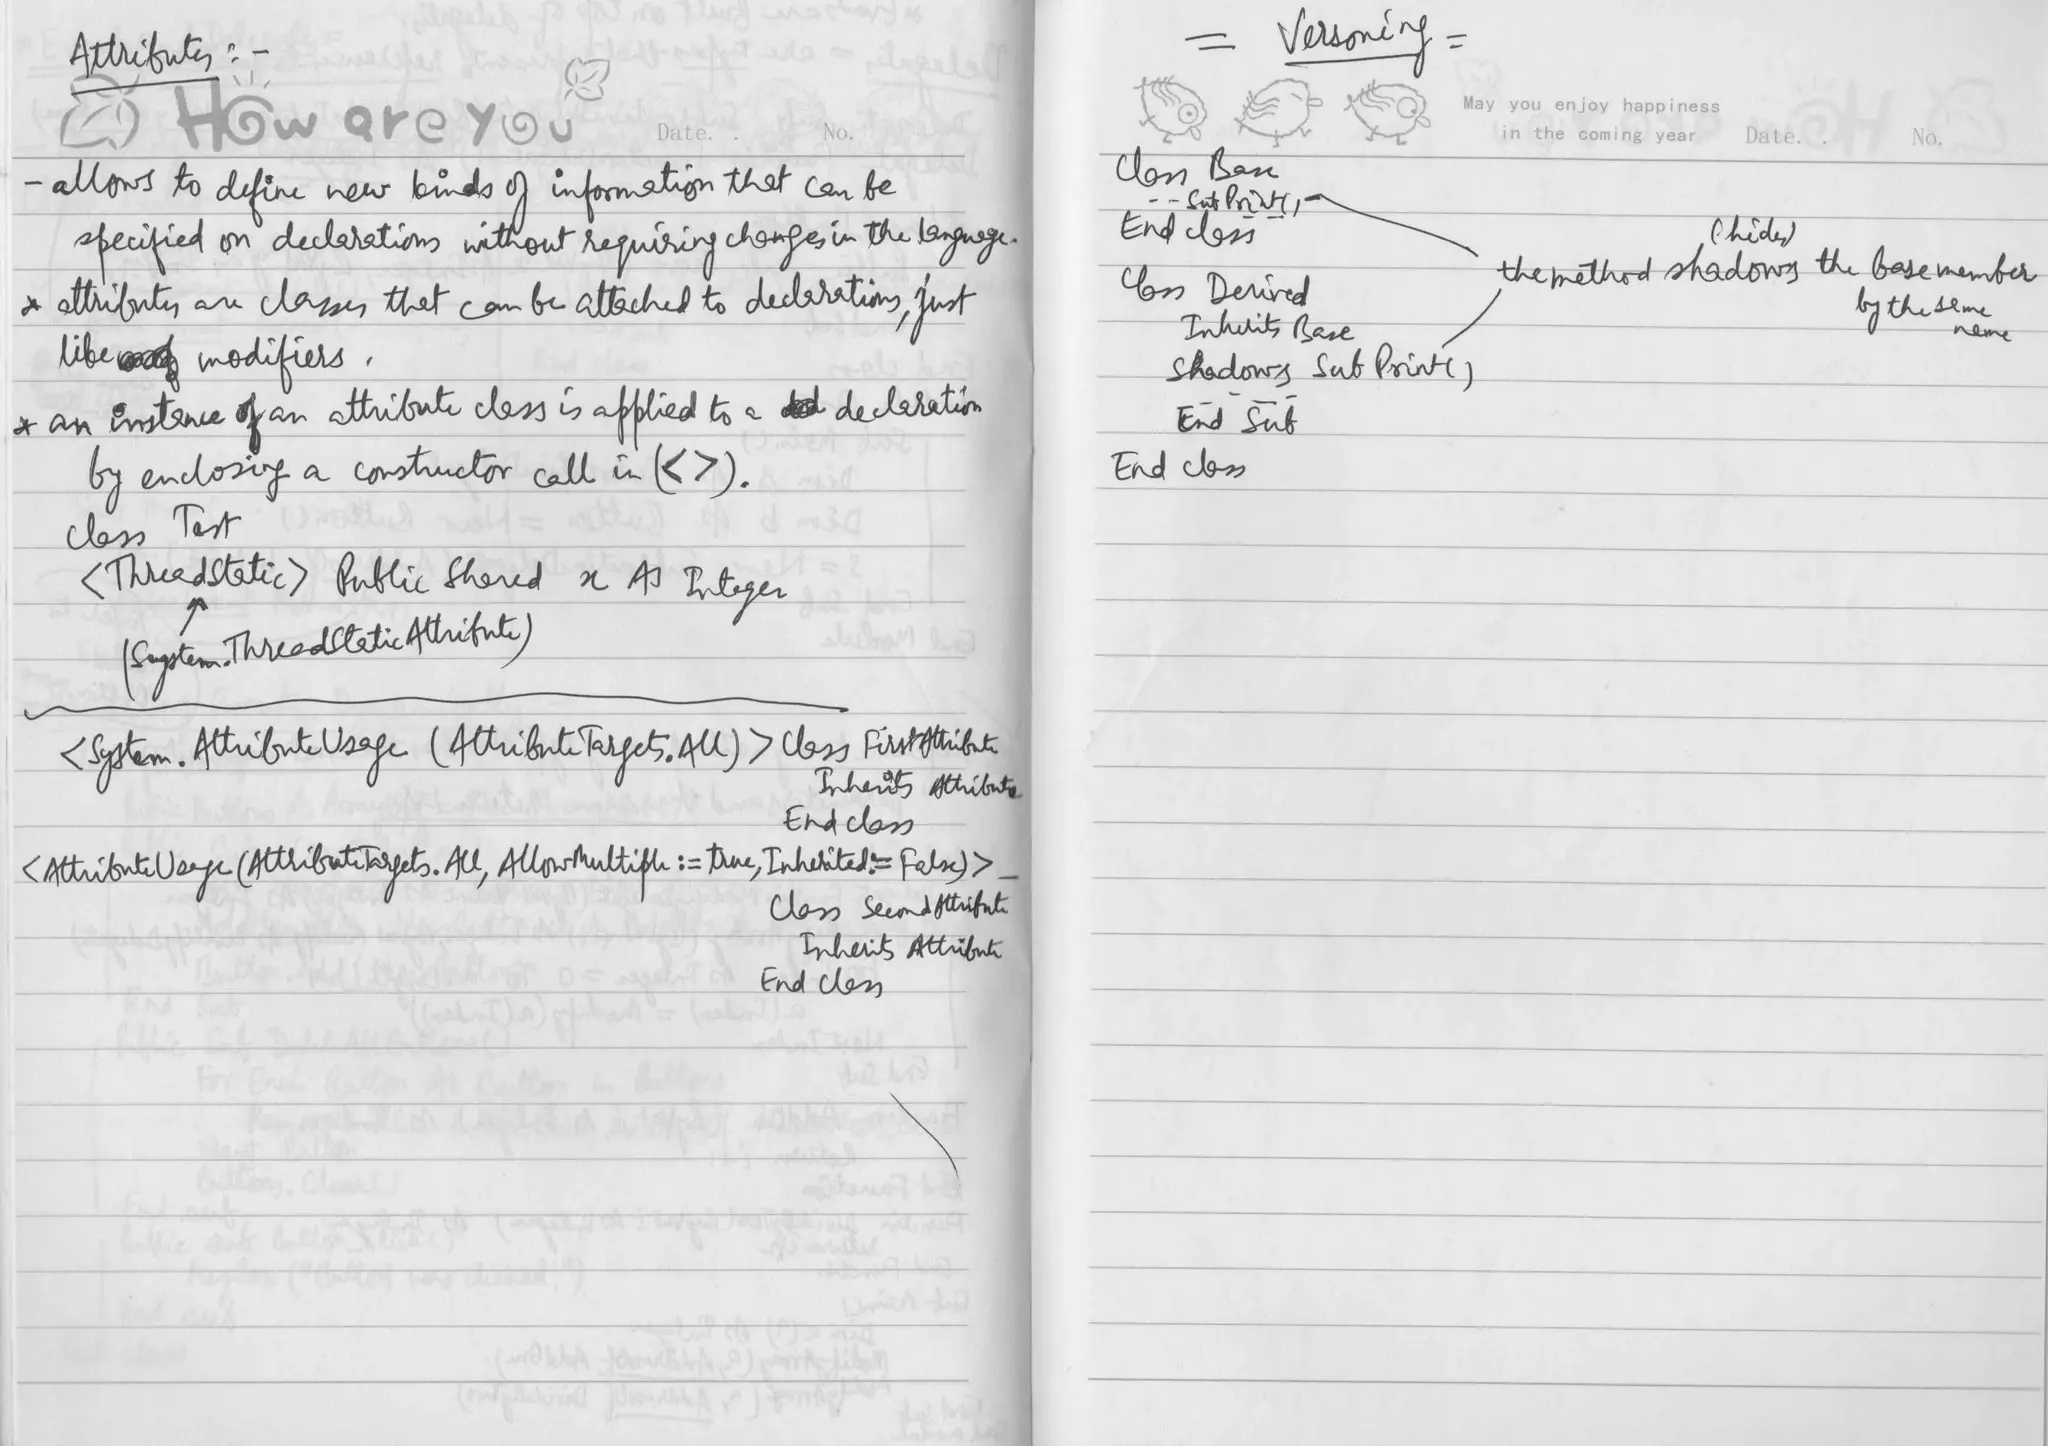 Attributes:-
How are you
Date. . No.
- allows to define new kinds of information that can be
specified on declarations without requiring changes in the language.
* attributes are classes that can be attached to declarations, just
like modifiers.
* an instance of an attribute class is applied to a declaration
by enclosing a constructor call in (< >).
Class Test
<ThreadStatic> Public Shared x As Integer
(System.ThreadStaticAttribute)
<System.AttributeUsage (AttributeTargets.All)> Class FirstAttribute
Inherits Attribute
End Class
<AttributeUsage(AttributeTargets.All, AllowMultiple := true, Inherited := False)> _
Class SecondAttribute
Inherits Attribute
End Class
= Versoning =
May you enjoy happiness
in the coming year Date. . No.
Class Base
-- Sub Print()
End Class
(hides)
the method shadows the base member
by the same
name
Class Derived
Inherits Base
Shadows Sub Print()
- - - -
End Sub
End Class